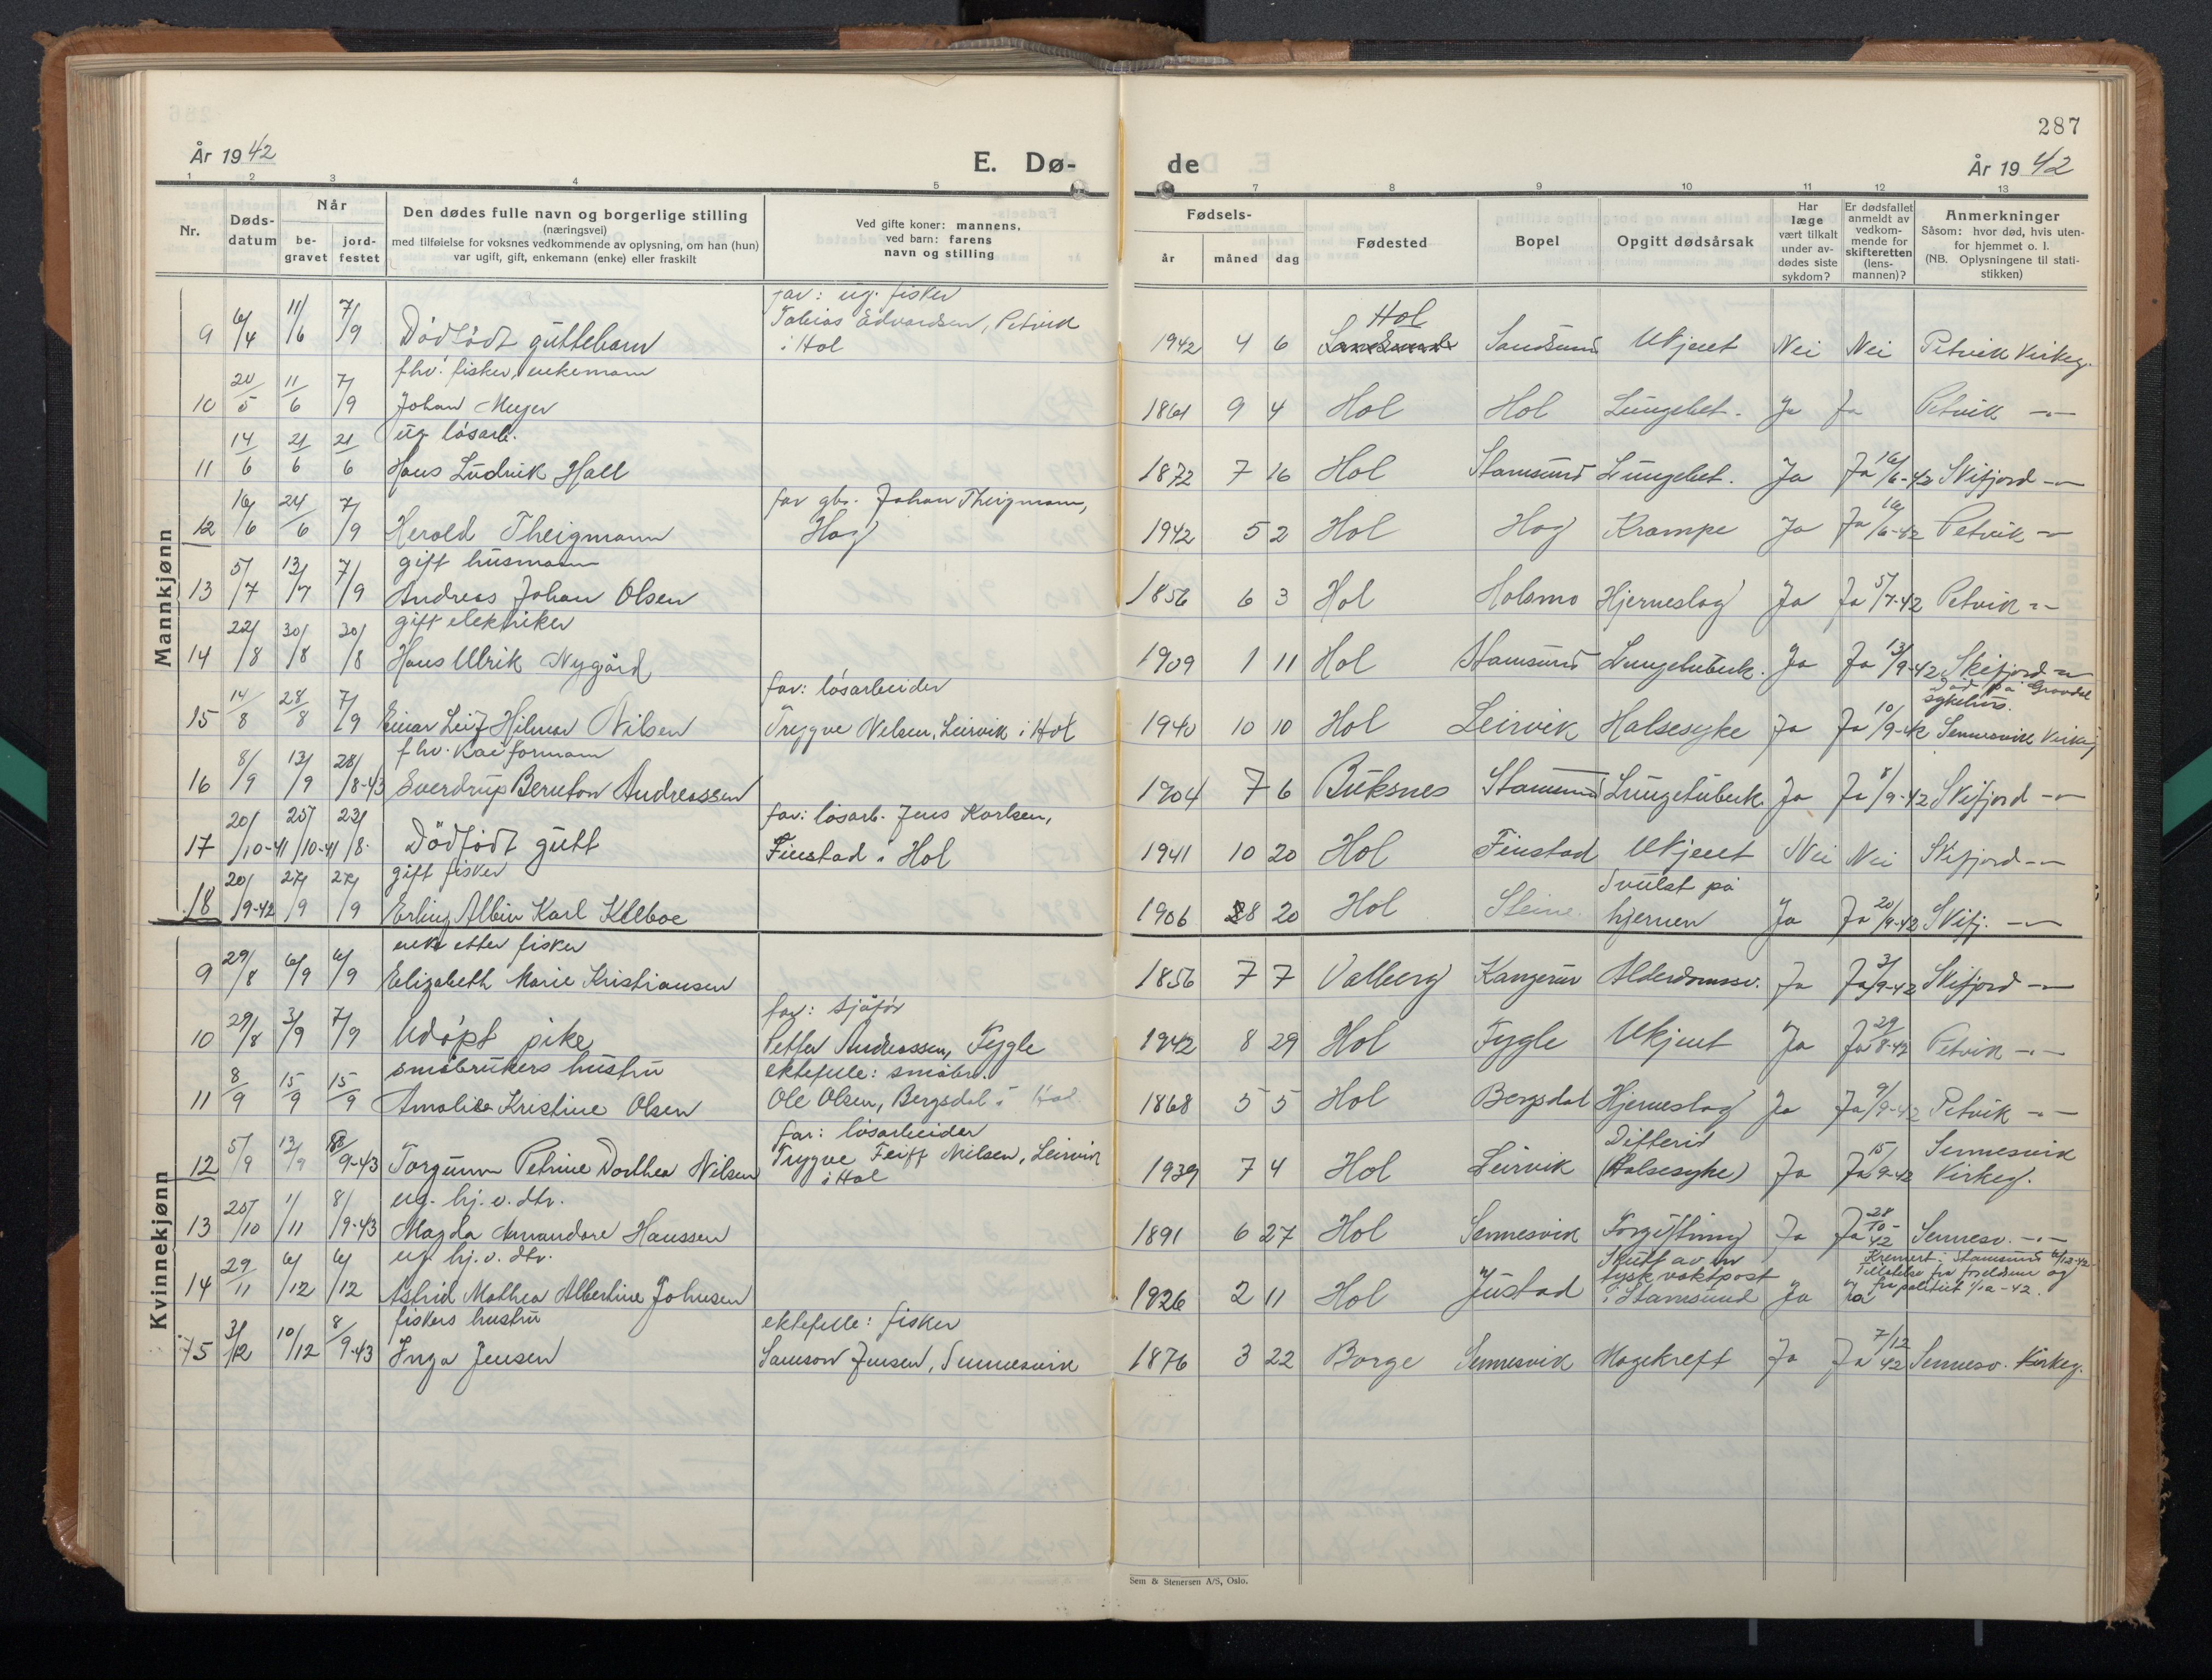 287
År 1942
E. Dø-
de
År 1942
1 2 3 4 5
7 8 9 10 11 12 13
Nr.
Døds-
datum
Når
be-
gravet
jord-
festet
Den dødes fulle navn og borgerlige stilling
(næringsvei)
med tilføielse for voksnes vedkommende av oplysning, om han (hun)
var ugift, gift, enkemann (enke) eller fraskilt
Ved gifte koner: mannens,
ved barn: farens
navn og stilling
Fødsels-
år måned dag
Fødested
Bopel
Opgitt dødsårsak
Har
læge
vært tilkalt
under av-
dødes siste
sykdom?
Er dødsfallet
anmeldt av
vedkom-
mende for
skifteretten
(lens-
mannen)?
Anmerkninger
Såsom: hvor død, hvis uten-
for hjemmet o. l.
(NB. Oplysningene til stati-
stikken)
Mannkjønn
far: ug. fisker
Tobias Edvardsen, Petvik
9 6/4 11/6 7/9 Dödfödt guttebarn i Hol 1942 4 6 Hol Sandsund Ukjent Nei Nei Petvik Kirkeg.
fhv. fisker, enkemann
10 20/5 11/6 7/9 Johan Meyer 1861 9 4 Hol Hol Lungebet. Ja Ja Petvik -"-
ug. lösarb.
11 14/6 21/6 21/6 Hans Ludvik Hall 1872 7 16 Hol Stamsund Lungebet. Ja Ja 16/6-42 Skifjord -"-
far gbr. Johan Theigmann,
12 16/6 24/6 7/9 Herold Theigmann Hag 1942 5 2 Hol Hag Krampe Ja Ja 16/6-42 Petvik -"-
gift husmann
13 5/7 13/7 7/9 Andreas Johan Olsen 1856 6 3 Hol Holsmo Hjerneslag Ja Ja 5/7-42 Petvik -"-
gift elektriker
14 22/8 30/8 30/8 Hans Ulrik Nygård 1909 1 11 Hol Stamsund Lungetuberk. Ja Ja 13/9-42 Skifjord -"-
far: lösarbeider
Död på Gravdal
sykehus.
15 14/8 28/8 7/9 Einar Leif Hilmar Nilsen Trygve Nilsen, Leirvik i Hol 1940 10 10 Hol Leirvik Halsesyke Ja Ja 10/9-42 Sennesvik Kirkeg.
fhv. Kaiformann
16 8/9 13/9 28/8-43 Sverdrup Bernton Andreassen 1904 7 6 Buksnes Stamsund Lungetuberk. Ja Ja 8/9-42 Skifjord -"-
far: lösarb. Jens Karlsen,
17 20/10-41 25/10-41 23/8 Dödfödt gutt Finstad i Hol 1941 10 20 Hol Finstad Ukjent Nei Nei Skifjord -"-
gift fisker
Svulst på
18 20/9-42 27/9 27/9 Erling Albin Karl Kleboe 1906 8 20 Hol Steine hjernen Ja Ja 20/9-42 Skifj. -"-
Kvinnekjønn
enke etter fisker
9 29/8 6/9 6/9 Elizabeth Marie Kristiansen 1856 7 7 Valberg Kangerur Alderdomssv. Ja Ja 3/9-42 Skifjord -"-
far: sjåför
10 29/8 3/9 7/9 Udöpt pike Petter Andreassen, Fygle 1942 8 29 Hol Fygle Ukjent Ja Ja 29/8-42 Petvik -"-
småbrukers hustru ektefelle: småbr.
11 8/9 15/9 15/9 Amalie Kristine Olsen Ole Olsen, Bergsdal i Hol 1868 5 5 Hol Bergsdal Hjerneslag Ja Ja 9/9-42 Petvik -"-
far: lösarbeider
Difterit
Sennesvik
12 5/9 13/9 8/9-43 Torgunn Petrine Dorthea Nilsen Trygve Leiff Nilsen, Leirvik i Hol 1939 7 4 Hol Leirvik (Halsesyke) Ja Ja 15/9-42 Kirkeg.
ug. hj.v. dtr.
13 25/10 1/11 8/9-43 Magda Amandore Hanssen 1891 6 27 Hol Sennesvik Forgiftning Ja Ja 28/10-42 Sennesv. -"-
ug. hj.v. dtr.
Skutt av en
tysk vaktpost
Kremert i Stamsund 6/12-42.
Tillatelse fra foreldrene og
14 29/11 6/12 6/12 Astrid Mathea Albertine Johnsen 1926 2 11 Hol Justad i Stamsund Ja Ja fra politiet 1/12-42.
fiskers hustru ektefelle: fisker
15 3/12 10/12 8/9-43 Inga Jensen Samson Jensen, Sennesvik 1876 3 22 Borge Sennesvik Magekreft Ja Ja 7/12 42 Sennesv. Kirkeg.
Sem & Stenersen A/S, Oslo.